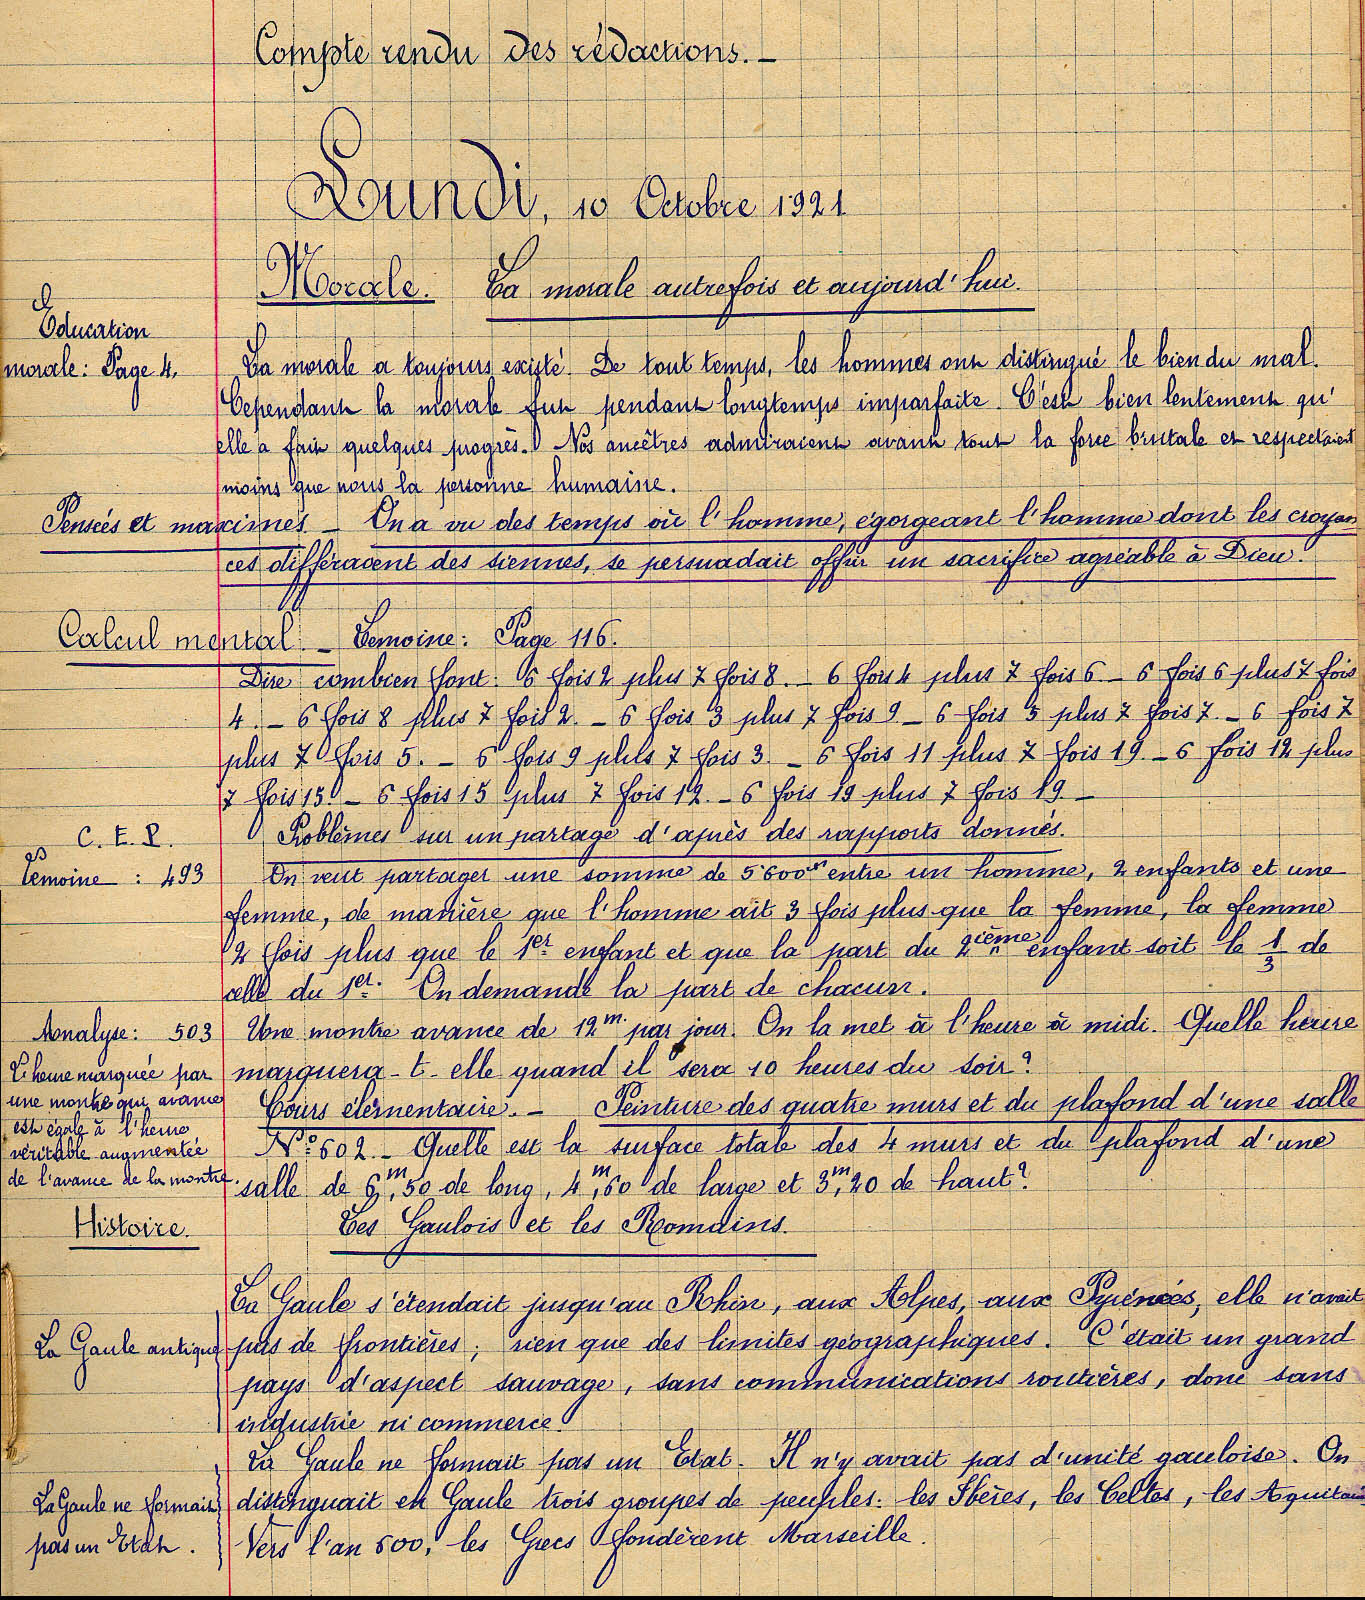 Compte rendu des rédactions. _
Lundi, 10 Octobre 1921
Morale. La morale autrefois et aujourd'hui.
Education
morale : Page 4.
La morale a toujours existé. De tout temps, les hommes ont distingué le bien du mal.
Cependant la morale fut pendant longtemps imparfaite. C'est bien lentement qu'
elle a fait quelques progrès. Nos ancêtres admiraient avant tout la force brutale et respectaient
moins que nous la personne humaine.
Pensées et maximes _ On a vu des temps où l'homme, égorgeant l'homme dont les croyan
ces différaient des siennes, se persuadait offrir un sacrifice agréable à Dieu.
Calcul mental. _ Lemoine : Page 116.
Dire combien font : 6 fois 2 plus 7 fois 8. _ 6 fois 4 plus 7 fois 6 _ 6 fois 6 plus 7 fois
4. _ 6 fois 8 plus 7 fois 2. _ 6 fois 3 plus 7 fois 9 _ 6 fois 5 plus 7 fois 7. _ 6 fois 7
plus 7 fois 5. _ 6 fois 9 plus 7 fois 3. _ 6 fois 11 plus 7 fois 19 _ 6 fois 12 plus
7 fois 15. _ 6 fois 15 plus 7 fois 12. _ 6 fois 19 plus 7 fois 19 _
C. E. P.
Problèmes sur un partage d'après des rapports donnés.
Lemoine : 493
On veut partager une somme de 5600 entre un homme, 2 enfants et une
femme, de manière que l'homme ait 3 fois plus que la femme, la femme
2 fois plus que le 1er enfant et que la part du 2ième enfant soit le 1/3 de
celle du 1er. On demande la part de chacun.
Analyse : 503
Une montre avance de 12m. par jour. On la met à l'heure à midi. Quelle heure
marquera-t-elle quand il sera 10 heures du soir ?
L'heure marquée par
une montre qui avance
est égale à l'heure
véritable augmentée
de l'avance de la montre.
Cours élémentaire. _ Peinture des quatre murs et du plafond d'une salle
N° 602. _ Quelle est la surface totale des 4 murs et du plafond d'une
salle de 6m,50 de long, 4m,60 de large et 3m,20 de haut ?
Histoire.
Les Gaulois et les Romains.
La Gaule antique
La Gaule s'étendait jusqu'au Rhin, aux Alpes, aux Pyrénées, elle n'avait
pas de frontières ; rien que des limites géographiques. C'était un grand
pays d'aspect sauvage, sans communications routières, donc sans
industrie ni commerce.
La Gaule ne formait
pas un Etat.
La Gaule ne formait pas un Etat. Il n'y avait pas d'unité gauloise. On
distinguait en Gaule trois groupes de peuples : les Ibères, les Celtes, les Aquitains
Vers l'an 600, les Grecs fondèrent Marseille.